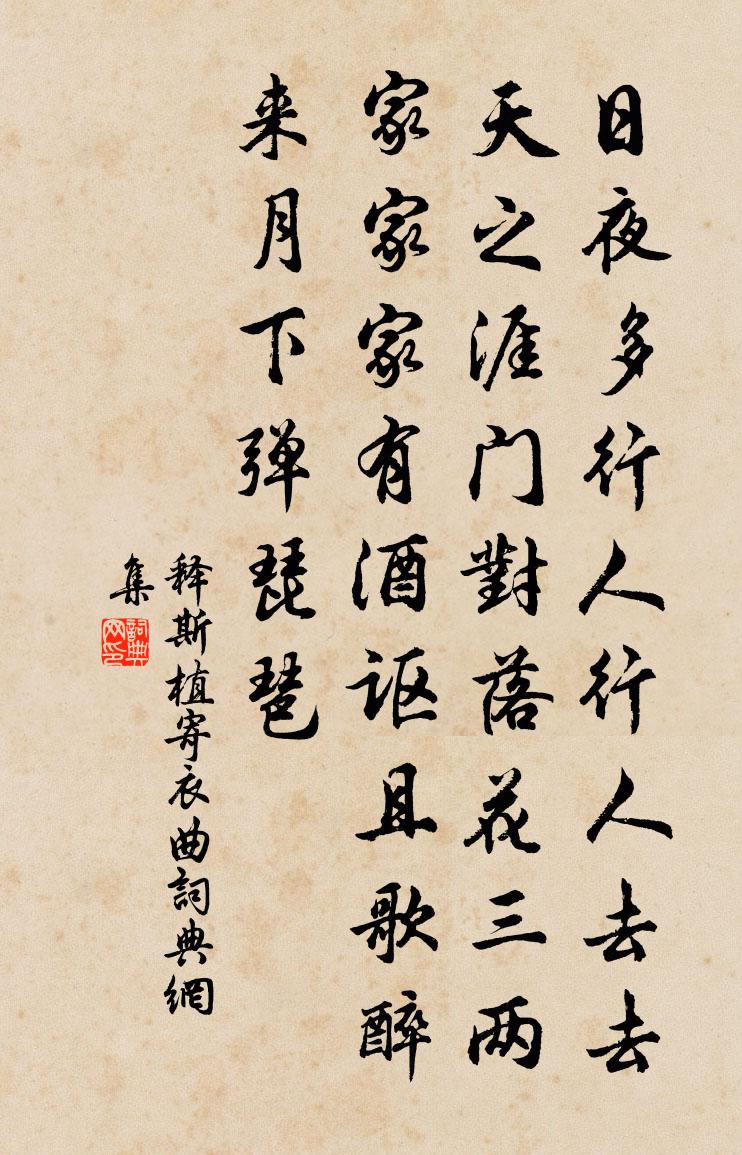 日夜多行人行人去去
天之涯门對落花三两
家家家有酒讴且歌醉
来月下弹琵琶
释斯植寄衣曲詞典網
集
詞典网印